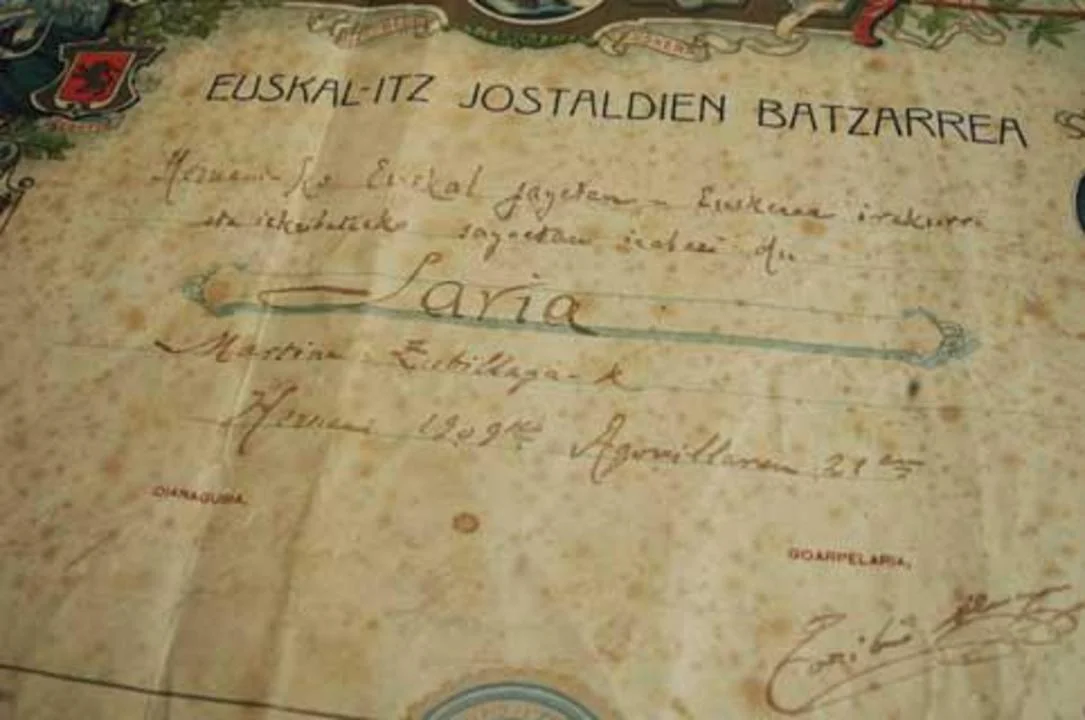 EUSKAL-ITZ JOSTALDIEN BATZARREA
Hernani-ko Euskal jayetan - Euskeraz irakurri
eta izkribatzeko sayoetan irabazi du
Saria
Martina Zubillaga-k
Hernani 1909ko Agorrillaren 21 an
DIARAGUBA,
GOARPELARIA,
Toribio